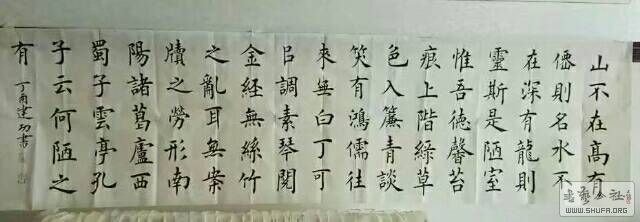 山不在高有
僊則名水不
在深有龍則
靈斯是陋室
惟吾德馨苔
痕上階綠草
色入簾青談
笑有鴻儒往
來無白丁可
㠯調素琴閱
金経無絲竹
之亂耳無案
牘之勞形南
陽諸葛廬西
蜀子雲亭孔
子云何陋之
有
丁酉建功書
WWW.SHUFR.ORG